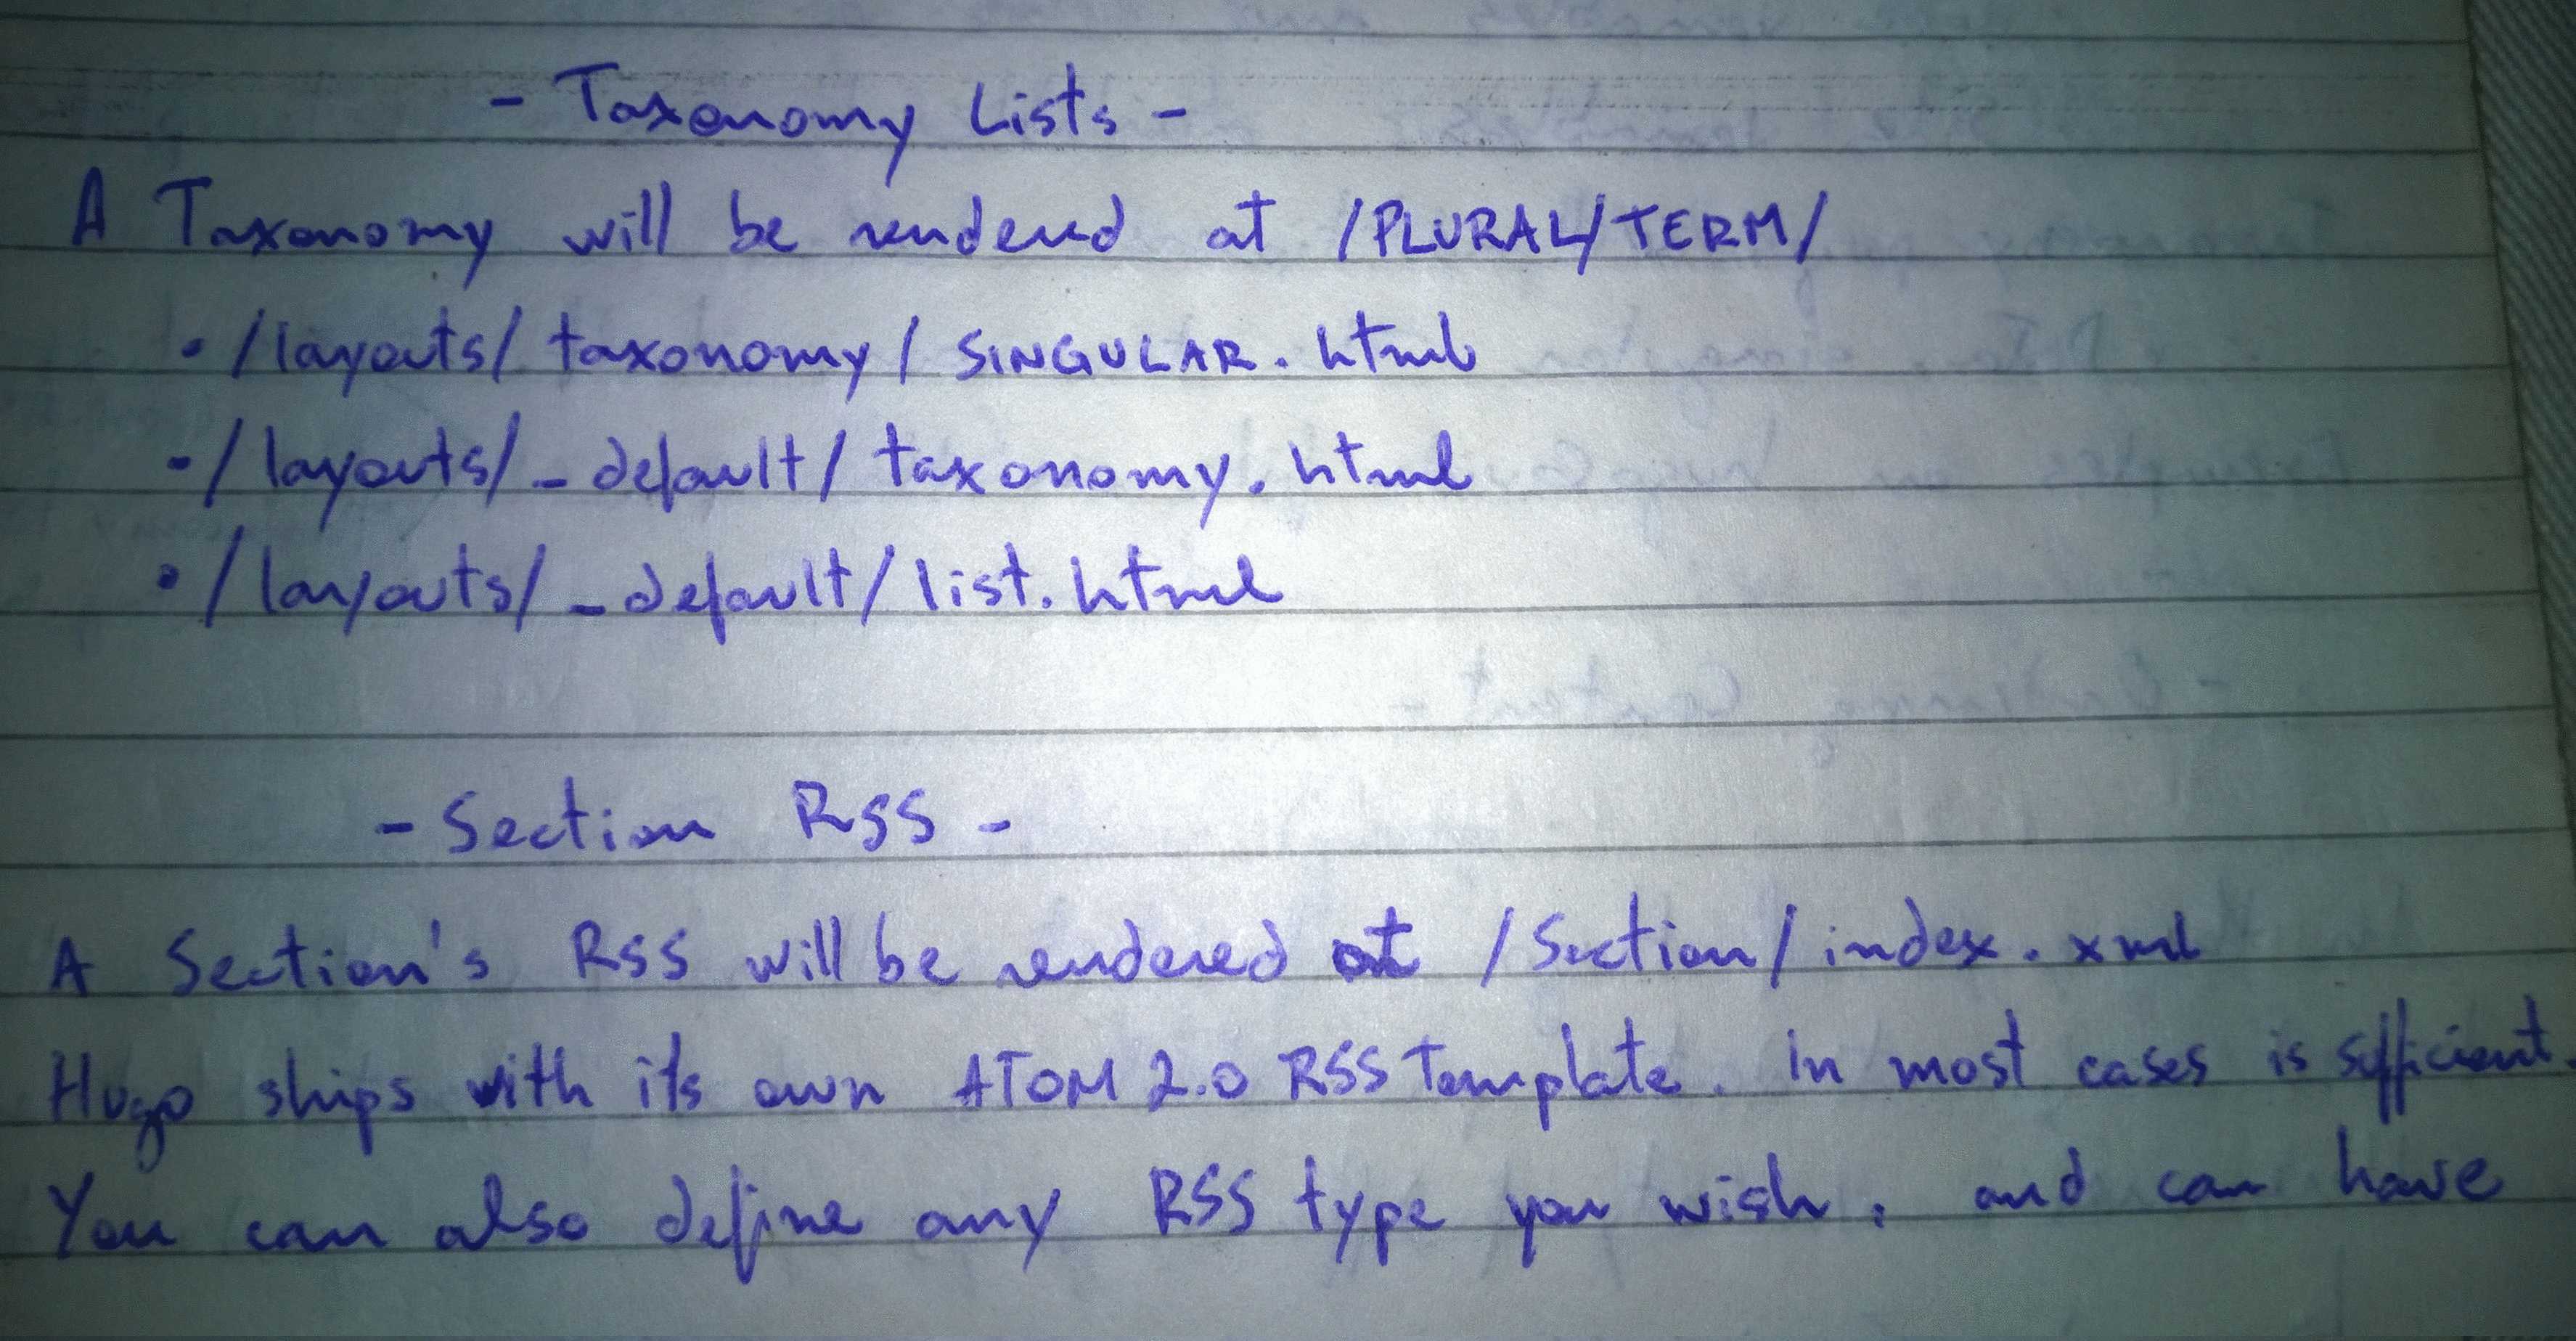 - Taxonomy Lists -
A Taxonomy will be rendered at /PLURAL/TERM/
• /layouts/taxonomy/SINGULAR.html
- /layouts/_default/taxonomy.html
• /layouts/_default/list.html
- Section RSS -
A Section's RSS will be rendered at /Section/index.xml
Hugo ships with its own ATOM 2.0 RSS Template. In most cases is sufficient.
You can also define any RSS type you wish, and can have